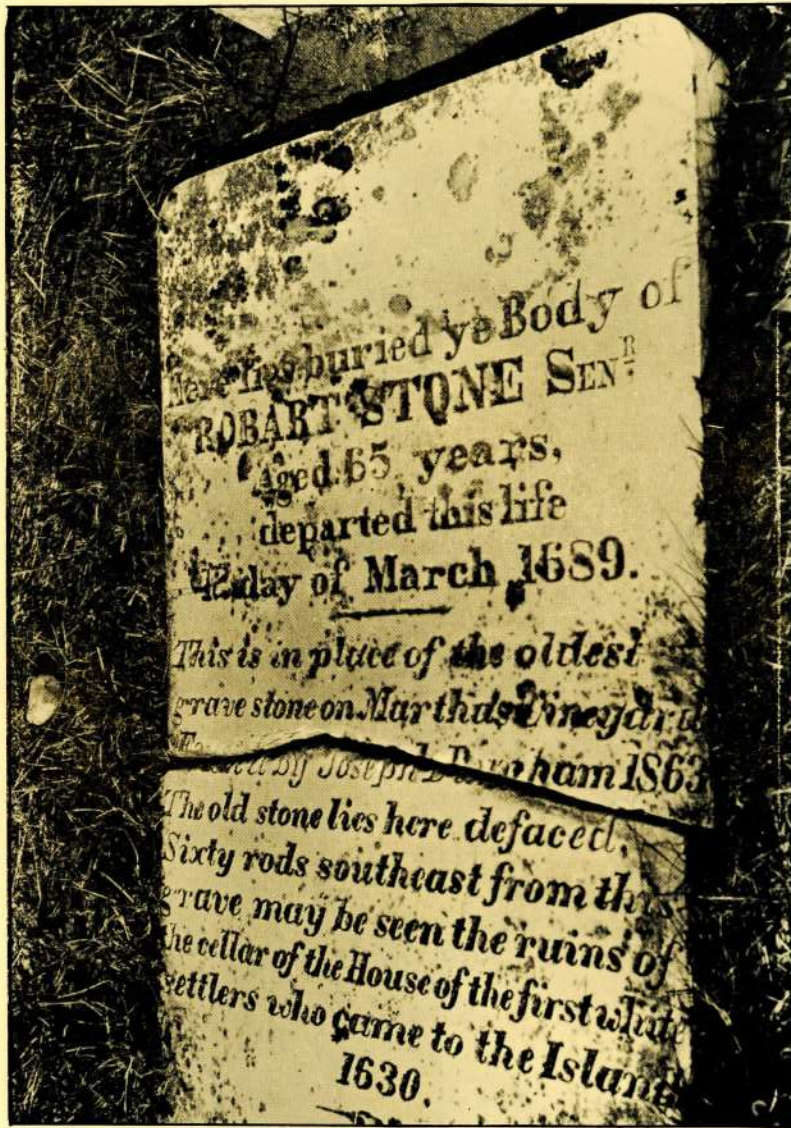 Here lies buried ye Body of
ROBART STONE SENR
Aged 65 years,
departed this life
day of March 1689.
This is in place of the oldest
grave stone on Marthas Vineyard
by Joseph 1863
The old stone lies here defaced.
Sixty rods southeast from this
grave may be seen the ruins of
the cellar of the House of the first white
settlers who came to the Island
1630.